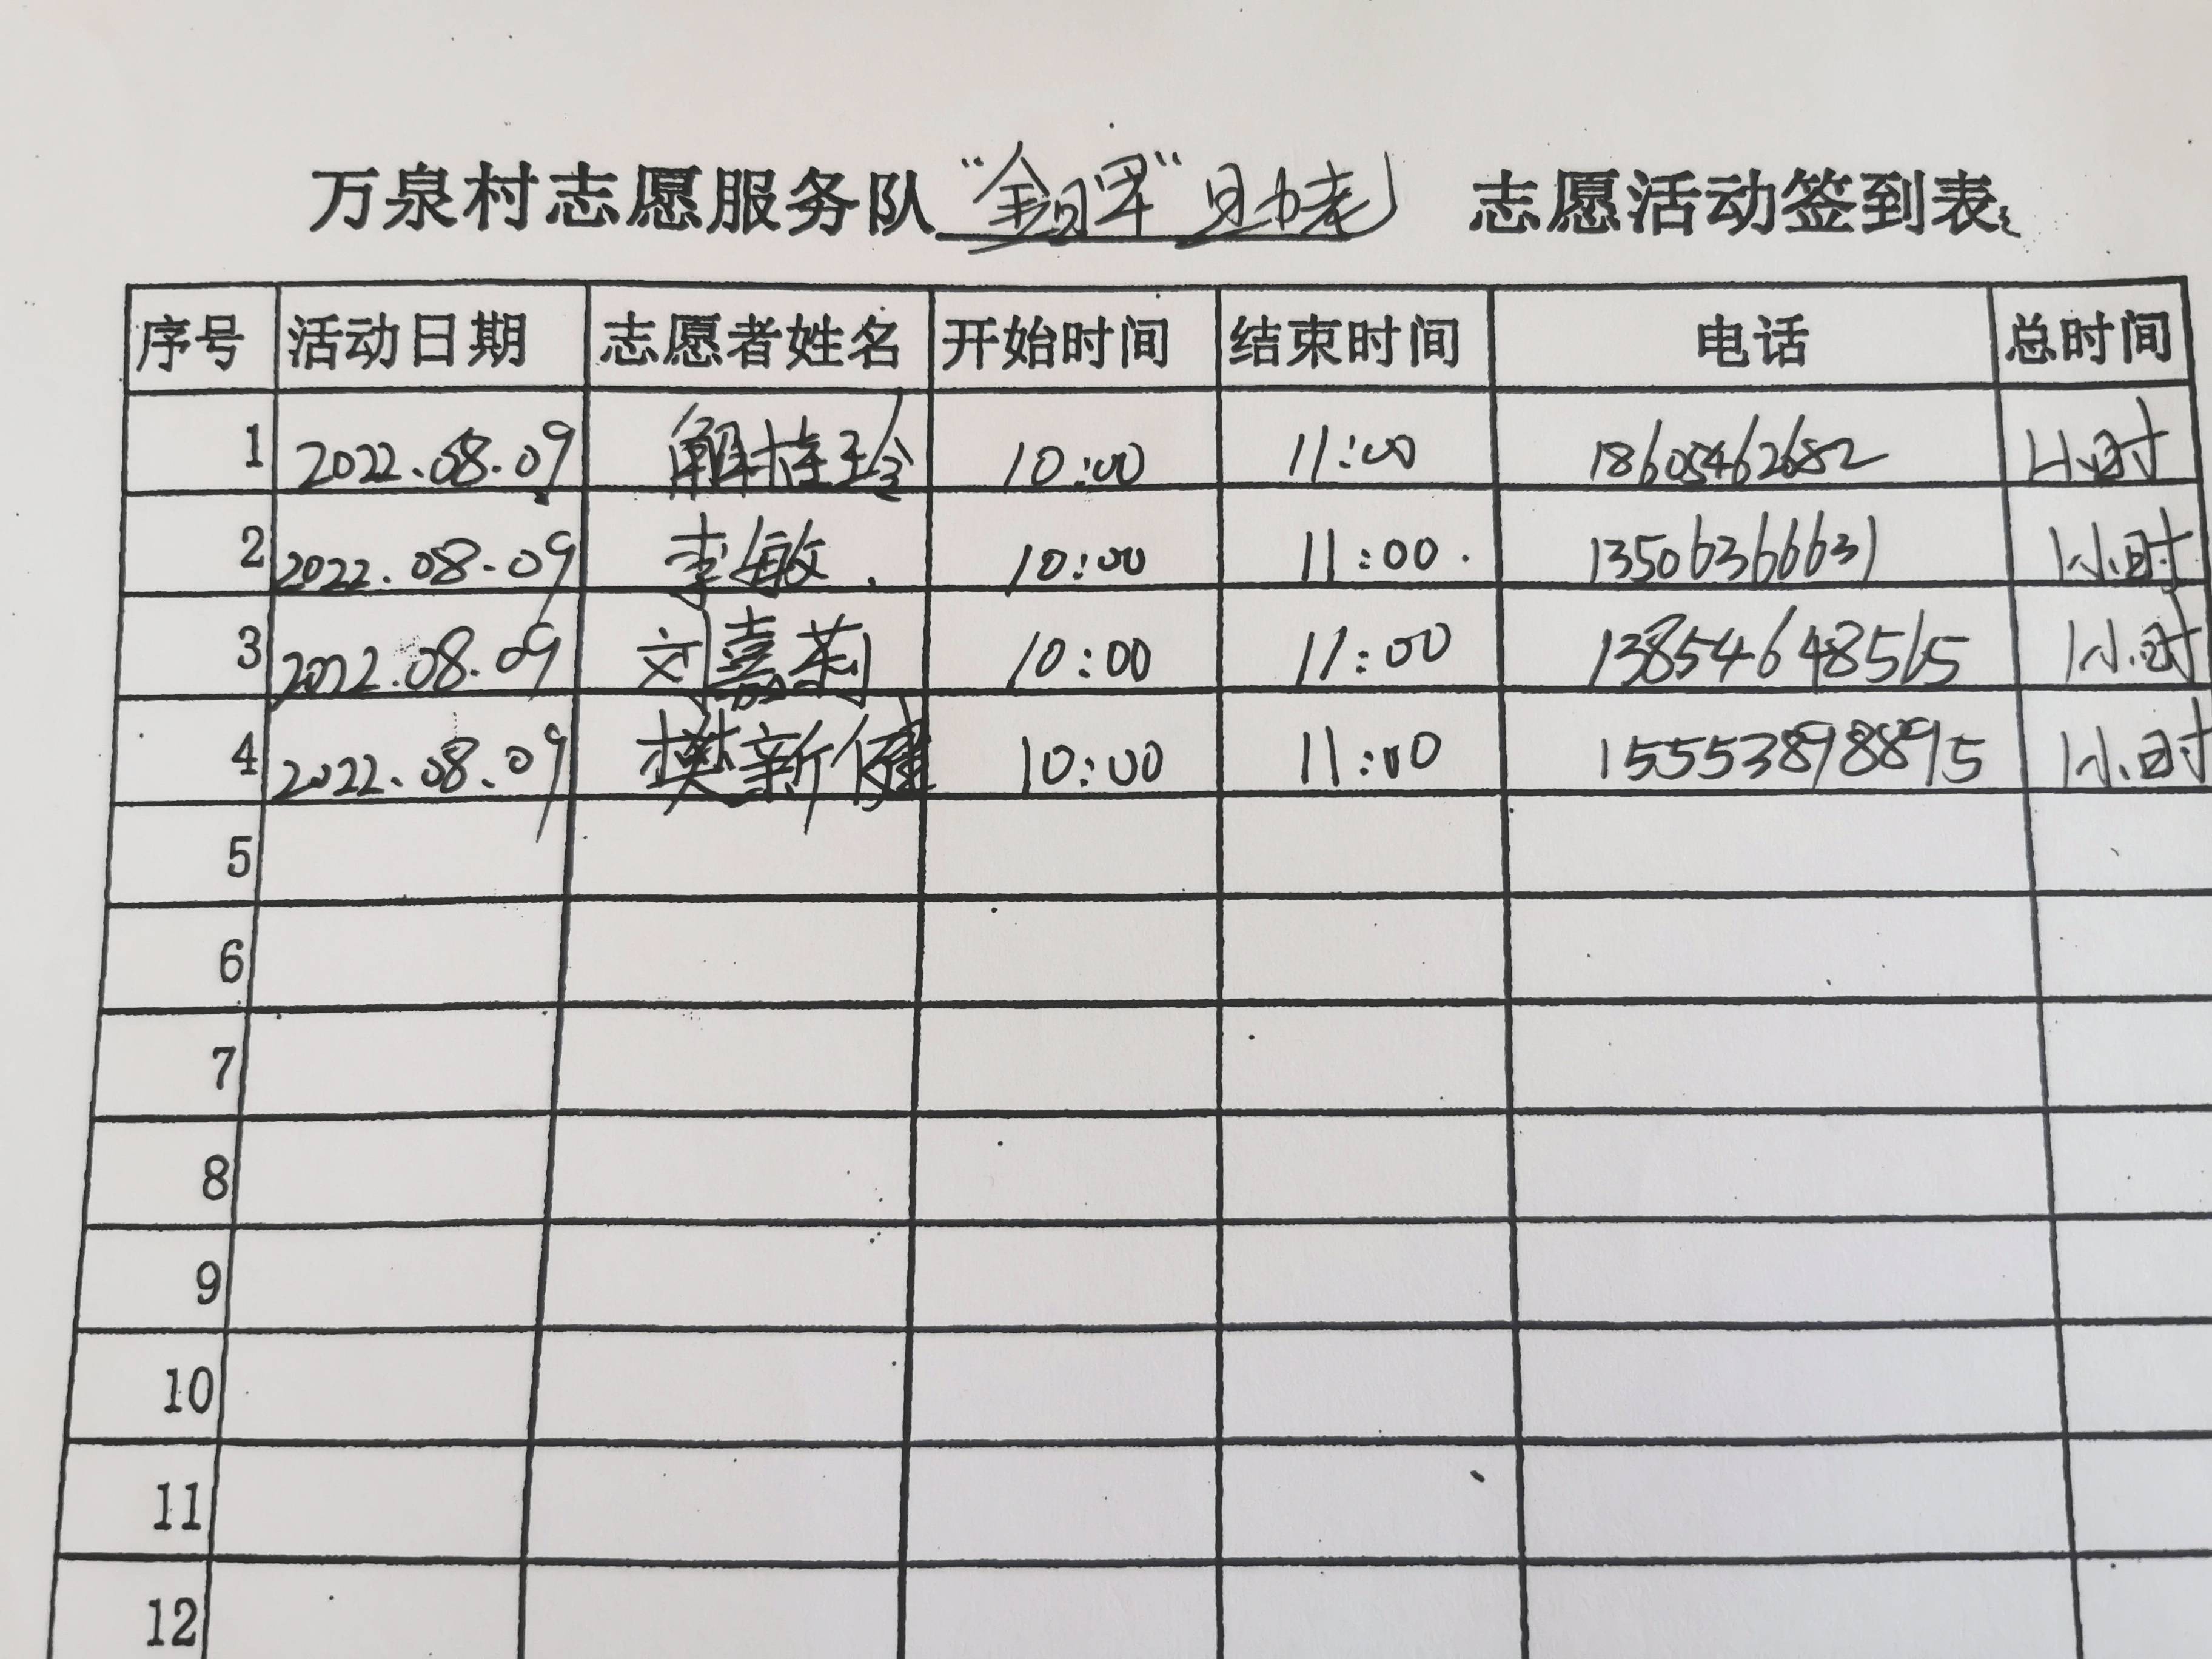 万泉村志愿服务队“银晖”助老 志愿活动签到表
序号 活动日期 志愿者姓名 开始时间 结束时间 电话 总时间
1 2022.08.09 解桂玲 10:00 11:00 18605462682 1小时
2 2022.08.09 李敏 10:00 11:00 13506366631 1小时
3 2022.08.09 刘嘉莉 10:00 11:00 13854648565 1小时
4 2022.08.09 樊新健 10:00 11:00 15553898895 1小时
5
6
7
8
9
10
11
12